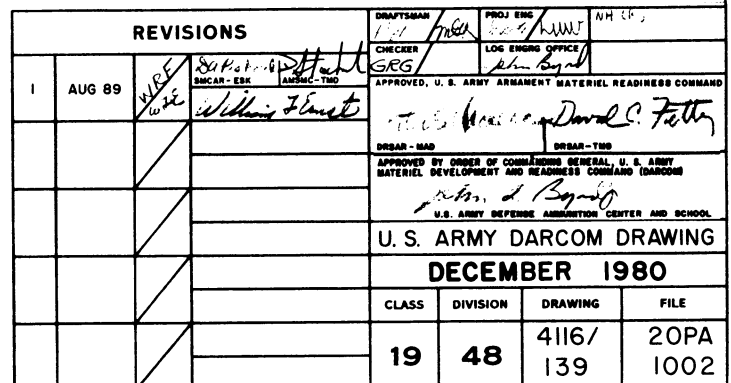 REVISIONS
1 AUG 89 WRF
SMCAR - ESK AMSMC - TMO
William F Ernst
DRAFTSMAN PROJ ENG
CHECKER LOG ENGRG OFFICE
GRG John Byrd
APPROVED, U. S. ARMY ARMAMENT MATERIEL READINESS COMMAND
David C. Fetty
DRSAR - MAD DRSAR - TMO
APPROVED BY ORDER OF COMMANDING GENERAL, U. S. ARMY
MATERIEL DEVELOPMENT AND READINESS COMMAND (DARCOM)
John L Byrd
U.S. ARMY DEFENSE AMMUNITION CENTER AND SCHOOL
U. S. ARMY DARCOM DRAWING
DECEMBER 1980
CLASS DIVISION DRAWING FILE
19 48 4116/ 20PA
139 1002